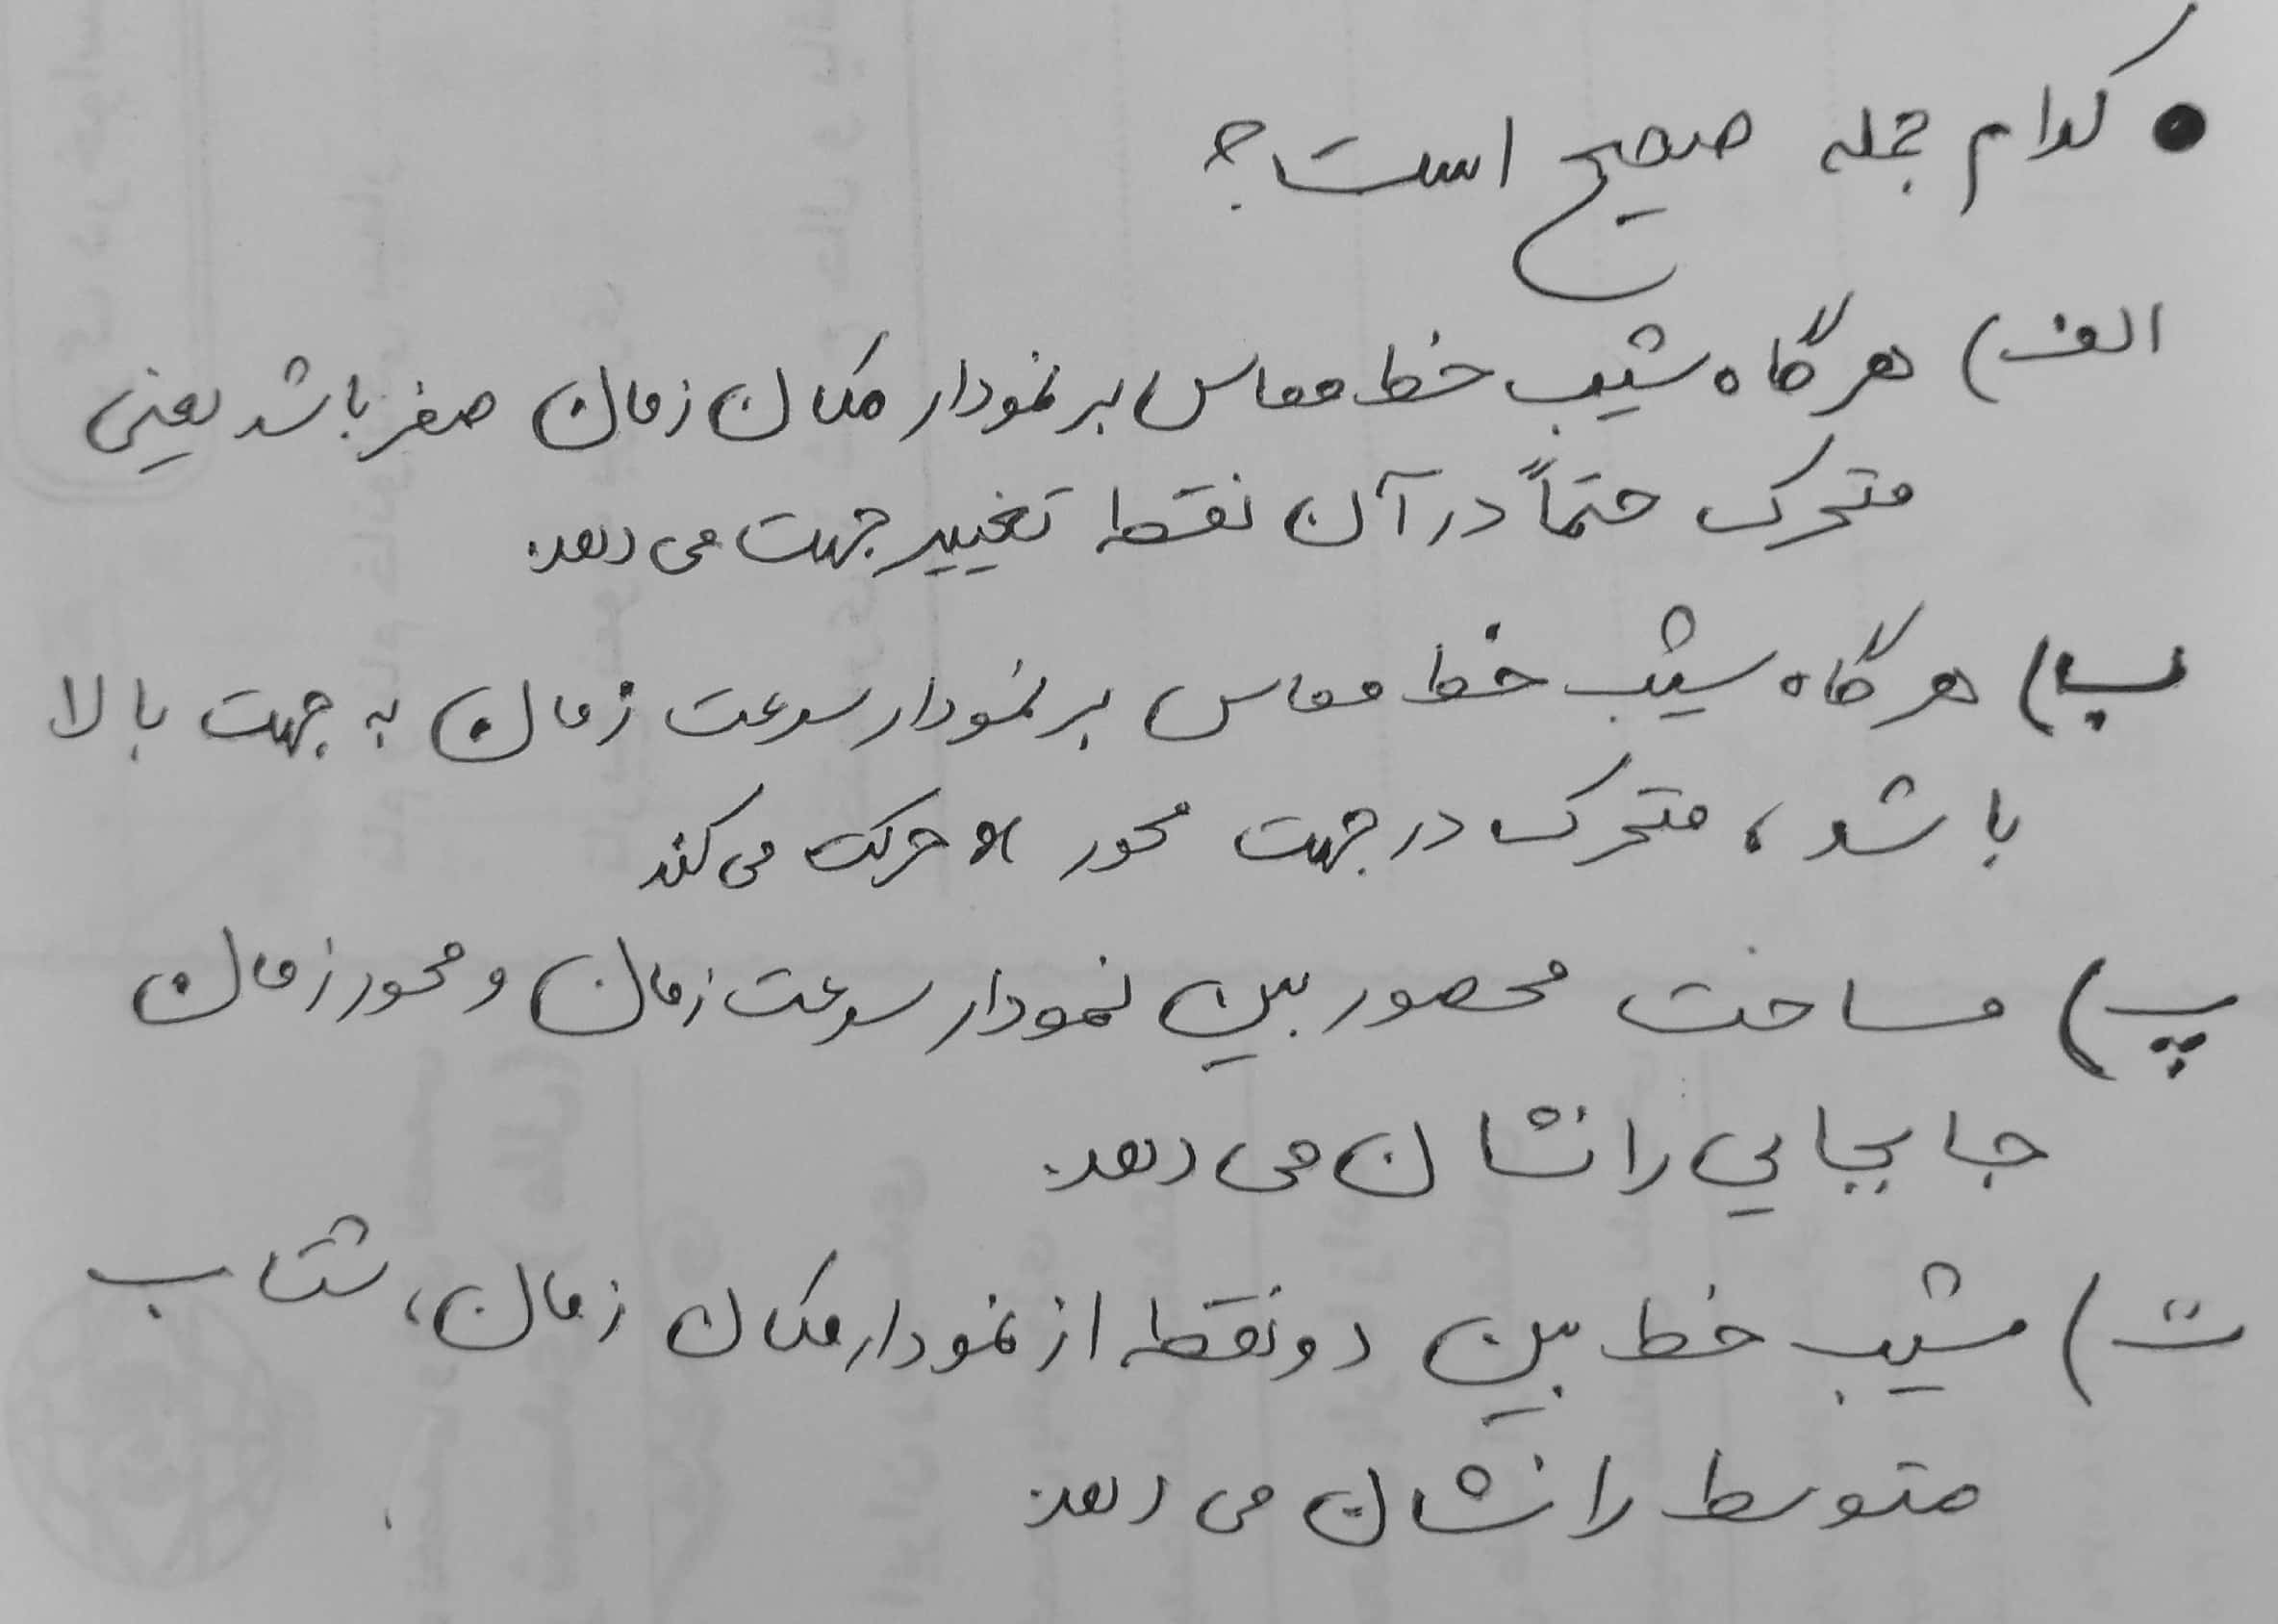 ● کدام جمله صحیح است؟
الف) هرگاه شیب خط مماس بر نمودار مکان زمان صفر باشد یعنی
متحرک حتماً در آن نقطه تغییر جهت می دهد.
ب) هرگاه شیب خط مماس بر نمودار سرعت زمان به جهت بالا
باشد، متحرک در جهت محور x حرکت می کند
پ) مساحت محصور بین نمودار سرعت زمان و محور زمان
جابجایی را نشان می دهد.
ت) شیب خط بین دو نقطه از نمودار مکان زمان، شتاب
متوسط را نشان می دهد.